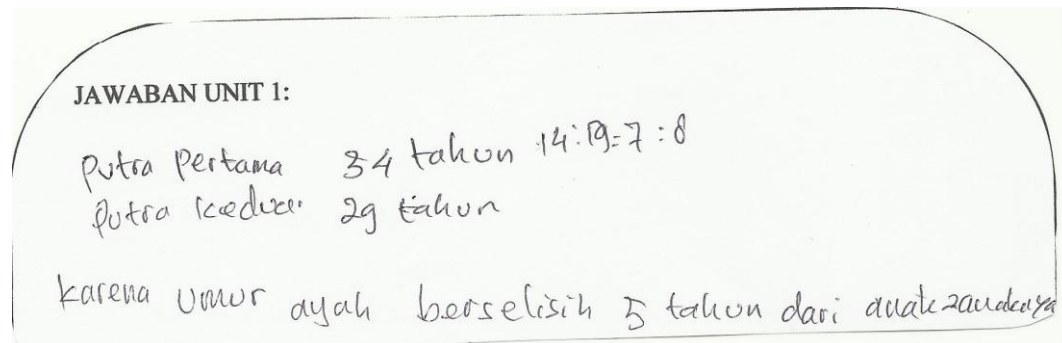 JAWABAN UNIT 1:
Putra Pertama 34 tahun 14:19=7:8
Putra kedua 29 tahun
karena umur ayah berselisih 5 tahun dari anak2anaknya